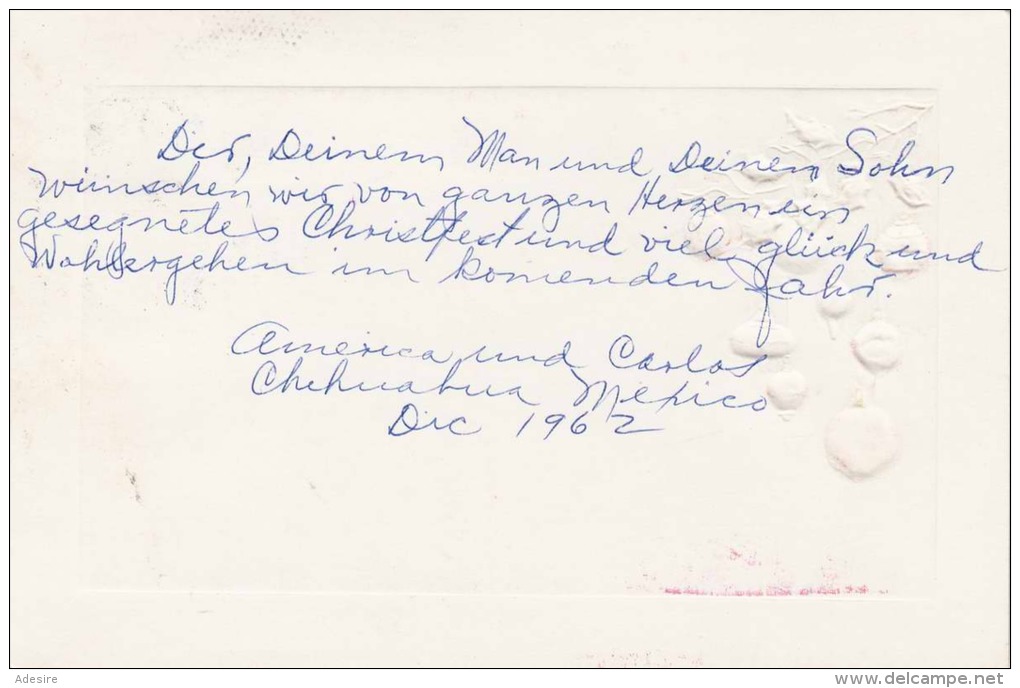 Dir, Deinem Man und Deinem Sohn
wünschen wir von ganzen Herzen ein
gesegnetes Christfest und viel glück und
Wohlergehen im komenden Jahr.
America und Carlos
Chihuahua Mexico
Dic 1962
Adesire
www.delcampe.net